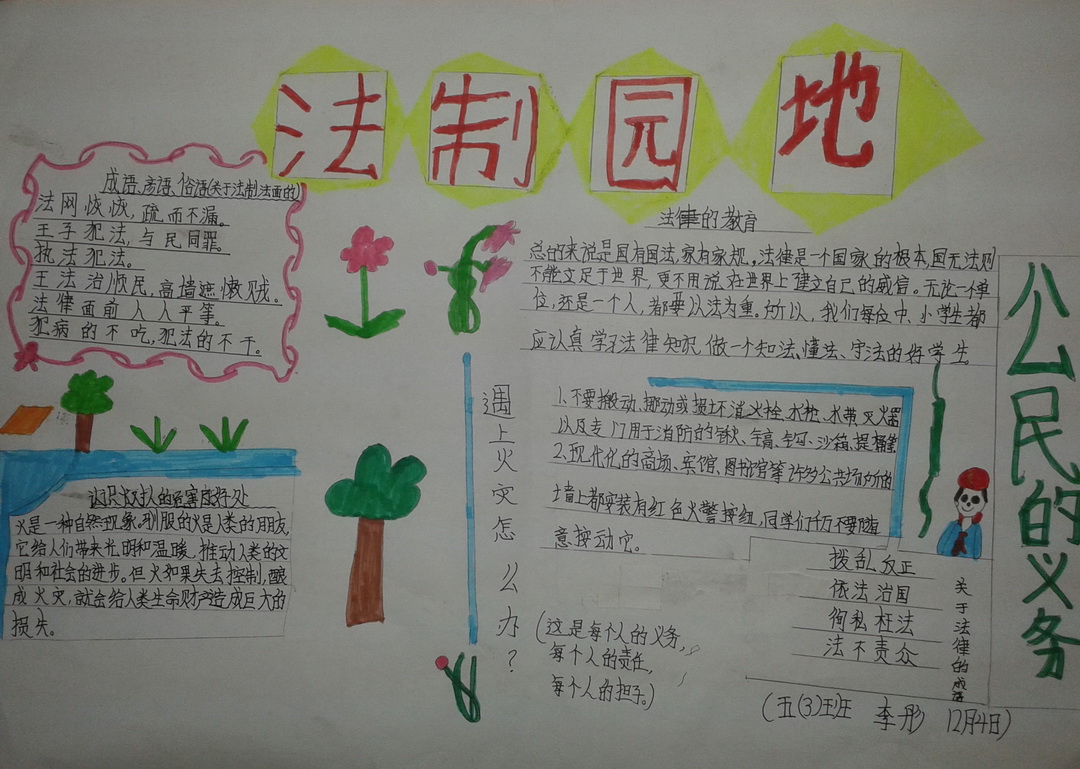 法制园地
成语、彦语、俗语(关于法制法面的)
法网恢恢,疏而不漏。
王子犯法,与民同罪。
执法犯法。
王法治顺民,高墙遮懒贼。
法律面前人人平等。
犯病的不吃,犯法的不干。
法律的教育
总的来说是国有国法,家有家规。法律是一个国家的根本,国无法则
不能立足于世界,更不用说在世界上建立自己的威信。无论一个单
位,还是一个人,都要以法为重。所以,我们每位中、小学生都
应认真学习法律知识,做一个知法、懂法、守法的好学生。
公民的义务
遇上火灾怎么办?
1、不要搬动、挪动或损坏消火栓、水枪、水带、灭火器
以及专门用于消防的锹、镐、沙箱、提桶等
2、现代化的商场、宾馆、图书馆等许多公共场所的
墙上都安装有红色火警按钮,同学们千万不要随
意按动它。
认识火对人的危害与好处
火是一种自然现象。驯服的火是人类的朋友,
它给人们带来光明和温暖,推动人类的文
明和社会的进步。但火如果失去控制,酿
成火灾,就会给人类生命财产造成巨大的
损失。
(这是每个人的义务,
每个人的责任,
每个人的担子。)
关于法律的成语
拨乱反正
依法治国
徇私枉法
法不责众
(五(3)班 李彤 12月4日)